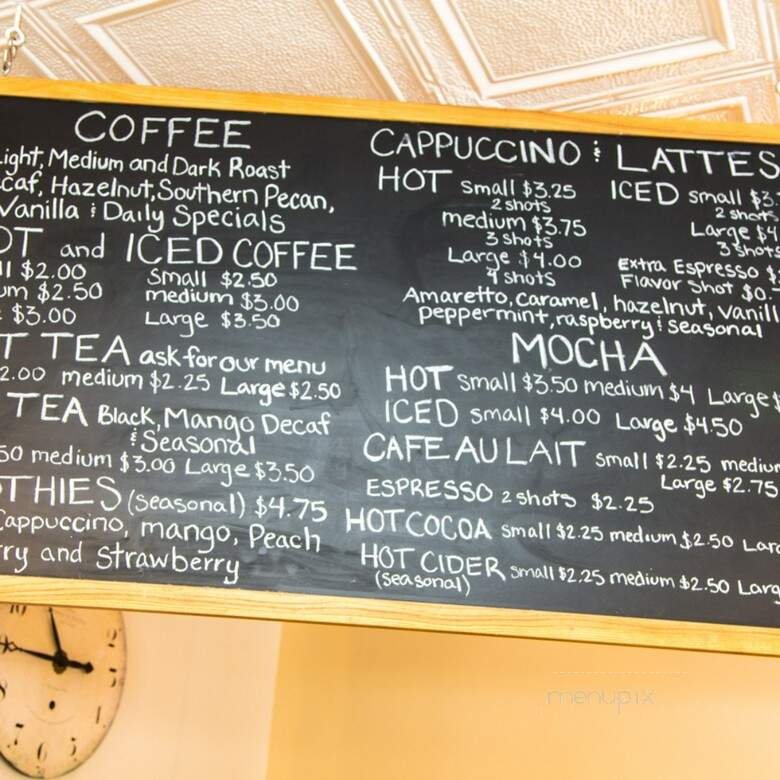 COFFEE
Light, Medium and Dark Roast
caf, Hazelnut, Southern Pecan,
Vanilla & Daily Specials
OT and ICED COFFEE
ll $2.00 Small $2.50
um $2.50 medium $3.00
$3.00 Large $3.50
T TEA ask for our menu
2.00 medium $2.25 Large $2.50
TEA Black, Mango Decaf
& Seasonal
50 medium $3.00 Large $3.50
OTHIES (seasonal) $4.75
Cappuccino, mango, Peach
rry and Strawberry
CAPPUCCINO & LATTES
HOT small $3.25
2 shots
medium $3.75
3 shots
Large $4.00
4 shots
ICED small $3.
2 shots
Large $4
3 shots
Extra Espresso $
Flavor Shot $0.
Amaretto, caramel, hazelnut, vanill
peppermint, raspberry & seasonal
MOCHA
HOT small $3.50 medium $4 Large $
ICED small $4.00 Large $4.50
CAFE AU LAIT small $2.25 medium
Large $2.75
ESPRESSO 2 shots $2.25
HOT COCOA small $2.25 medium $2.50 Larg
HOT CIDER small $2.25 medium $2.50 Larg
(seasonal)
menupix